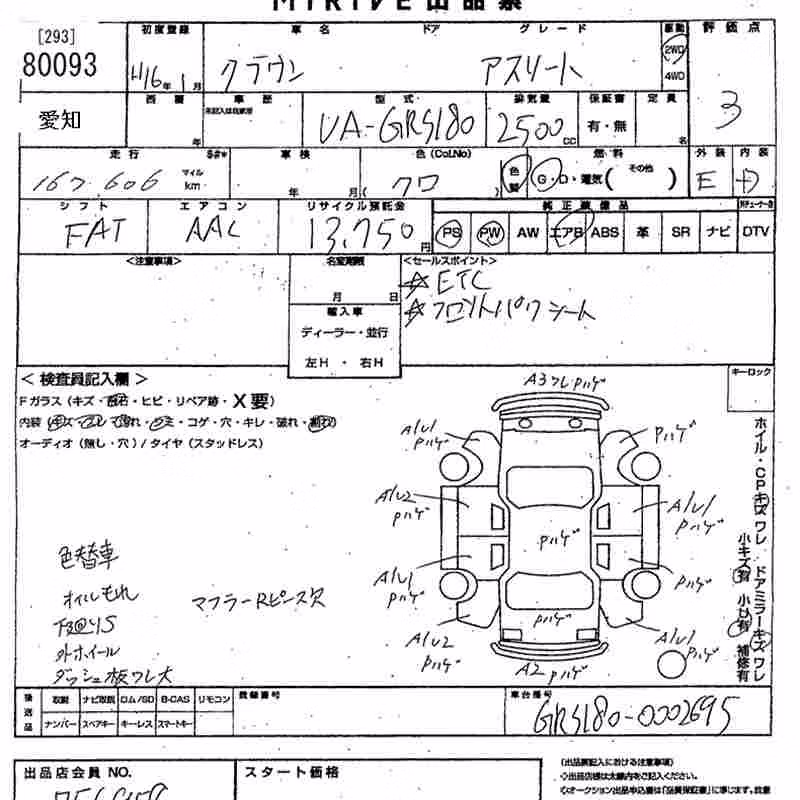 MIRIVE出品票
[293]
80093
初度登録
H16年1月
車名 ドア グレード
クラウン アスリート
駆動
2WD
4WD
評価点
3
愛知
西暦
年
車歴
型式
UA-GRS180
排気量
2500cc
保証書
有・無
定員
名
走行
167,606
マイル
km
車検
年 月
色(CoI.No)
クロ
色替
燃料
G・D・電気( その他 )
外装
E
内装
D
シフト
FAT
エアコン
AAC
リサイクル預託金
13,750円
純正装備品
PS PW AW エアB ABS 革 SR ナビ DTV
<注意事項>
名変期限
月 日
輸入車
ディーラー・並行
左H・右H
<セールスポイント>
☆ETC
☆フロントパワシート
<検査員記入欄>
Fガラス(キズ・飛石・ヒビ・リペア跡・X要)
オーディオ(無し・穴)/タイヤ(スタッドレス)
キーロック
A3ワレPハゲ
A1U1
Pハゲ
Pハゲ
A1U2
Pハゲ
A1U1
Pハゲ
Pハゲ
A1U1
Pハゲ
Pハゲ
A1U2
Pハゲ
Pハゲ
A1U1
Pハゲ
A2 Pハゲ
ホイル・CPキズワレ ドアミラーキズワレ
小キズ有 小U有 補修有
色替車
オイルもれ
下回りS
外ホイール
ダッシュ板ワレ大
マフラーRピース欠
後送品
取説 ナビ取説 ロム/SD B-CAS リモコン
ナンバー スペアキー キーレス スマートキー
登録番号
車台番号
GRS180-0002695
出品店会員 NO.
スタート価格
(出品票記入における注意事項)
◇出品店様は太線内をご記入ください。